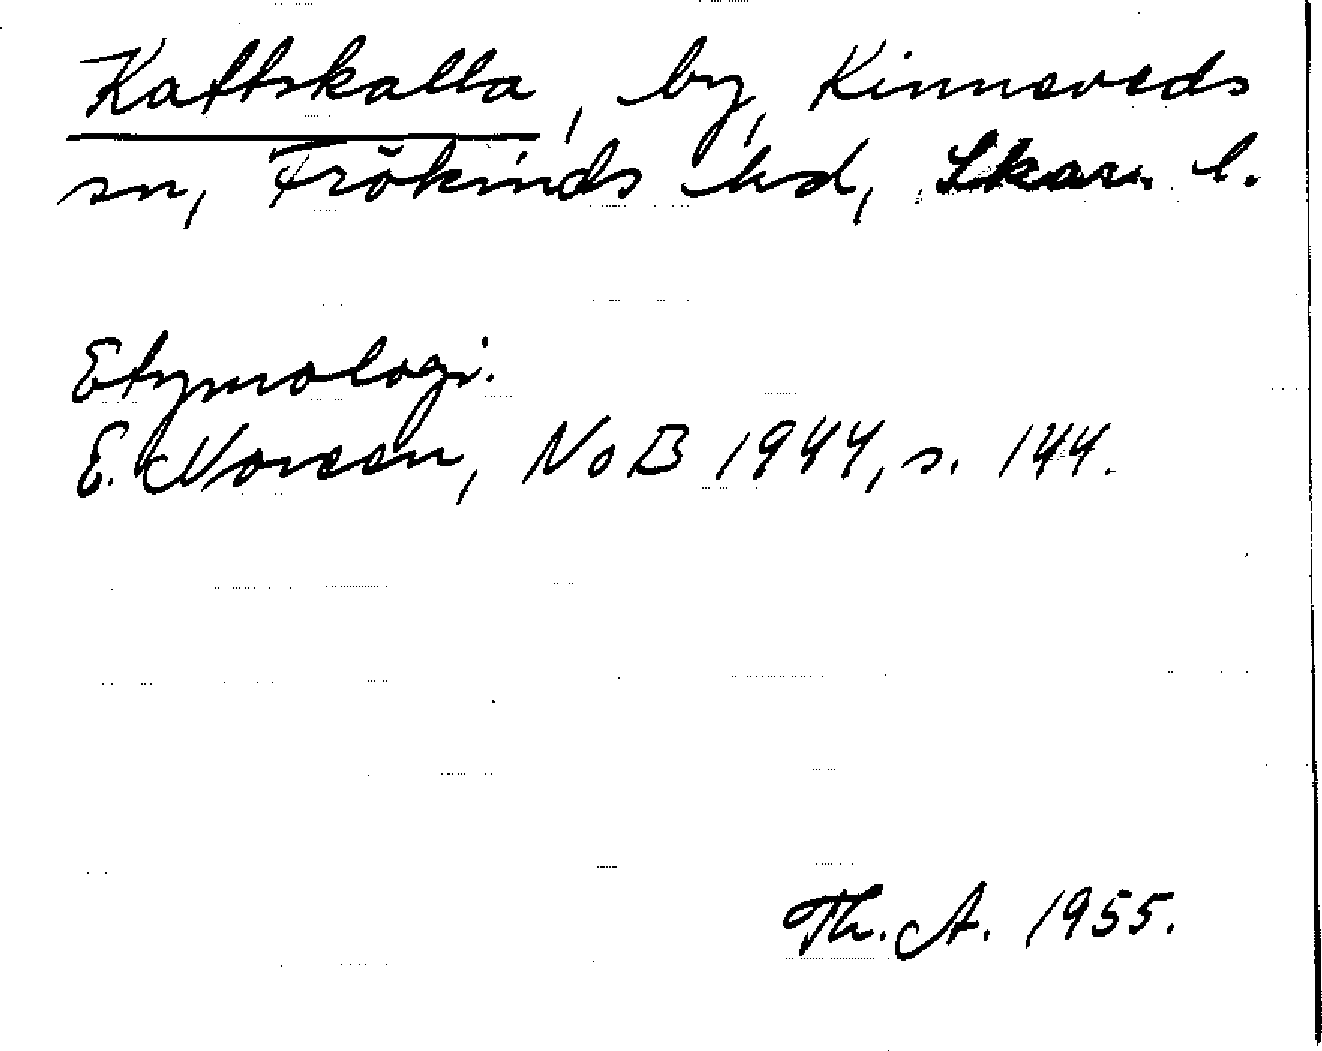 Kattskalla, by, Kinneveds
sn, Frökinds hd, Skar. l.
Etymologi.
E. Noreen, NoB 1944, s. 144.
Th. A. 1955.